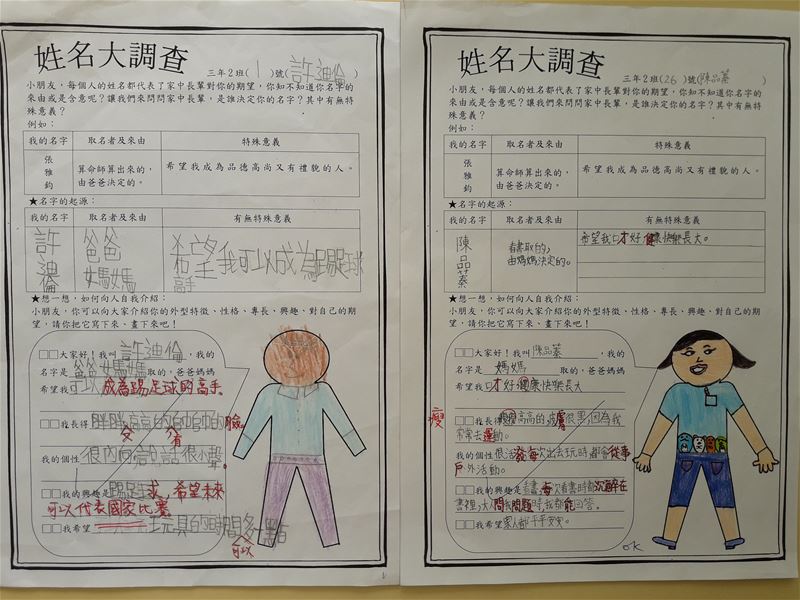 姓名大調查
三年2班(1)號(許迪倫)
小朋友，每個人的姓名都代表了家中長輩對你的期望，你知不知道你名字的
來由或是含意呢？讓我們來問問家中長輩，是誰決定你的名字？其中有無特
殊意義？
例如：
我的名字 取名者及來由 特殊意義
張雅鈞 算命師算出來的，由爸爸決定的。 希望我成為品德高尚又有禮貌的人。
★名字的起源：
我的名字 取名者及來由 有無特殊意義
許迪倫 爸爸媽媽 希望我可以成為踢足球高手
★想一想，如何向人自我介紹：
小朋友，你可以向大家介紹你的外型特徵、性格、專長、興趣、對自己的期
望，請你把它寫下來、畫下來吧！
□□大家好！我叫許迪倫，我的
名字是爸爸媽媽取的，爸爸媽媽
希望我可以成為踢足球的高手
□□我長得胖胖高高的帥帥的臉
我的個性很內向說的話很小聲。
□□我的興趣是踢足球，希望未來
可以代表國家比賽
□□我希望玩具的時間多一點
可以
姓名大調查
三年2班(26)號(陳品蓁)
小朋友，每個人的姓名都代表了家中長輩對你的期望，你知不知道你名字的
來由或是含意呢？讓我們來問問家中長輩，是誰決定你的名字？其中有無特
殊意義？
例如：
我的名字 取名者及來由 特殊意義
張雅鈞 算命師算出來的，由爸爸決定的。 希望我成為品德高尚又有禮貌的人。
★名字的起源：
我的名字 取名者及來由 有無特殊意義
陳品蓁 看書取的，由媽媽決定的。 希望我口才好健康快樂長大。
★想一想，如何向人自我介紹：
小朋友，你可以向大家介紹你的外型特徵、性格、專長、興趣、對自己的期
望，請你把它寫下來、畫下來吧！
□□大家好！我叫陳品蓁，我的
名字是媽媽取的，爸爸媽媽
希望我口才好健康快樂長大
瘦
□□我長得瘦瘦高高的皮膚很黑，因為我
常常去運動。
我的個性很活潑每次出去玩時都會從事
戶外活動。
□□我的興趣是看書，每次看書時都沉醉在
書裡，大人問我問題時，我都能回答。
□□我希望家人都平平安安。
OK